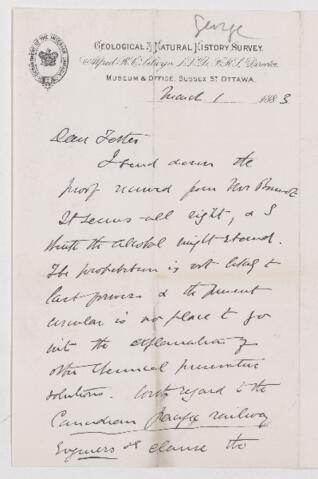 George
GEOLOGICAL & NATURAL HISTORY SURVEY.
Alfred R. C. Selwyn L.L.D. F.R.S. Director
MUSEUM & OFFICE, SUSSEX ST. OTTAWA.
March 1 1883
Dear Father
I send down the
proof received from Mr
It seems all right, & I
think the alcohol might stand.
The prohibition is not likely to
last forever & the present
circular is no place to go
into the explanation of
other chemical preservative
solutions. With regard to the
Canadian Pacific railway
Engineers &c clause the